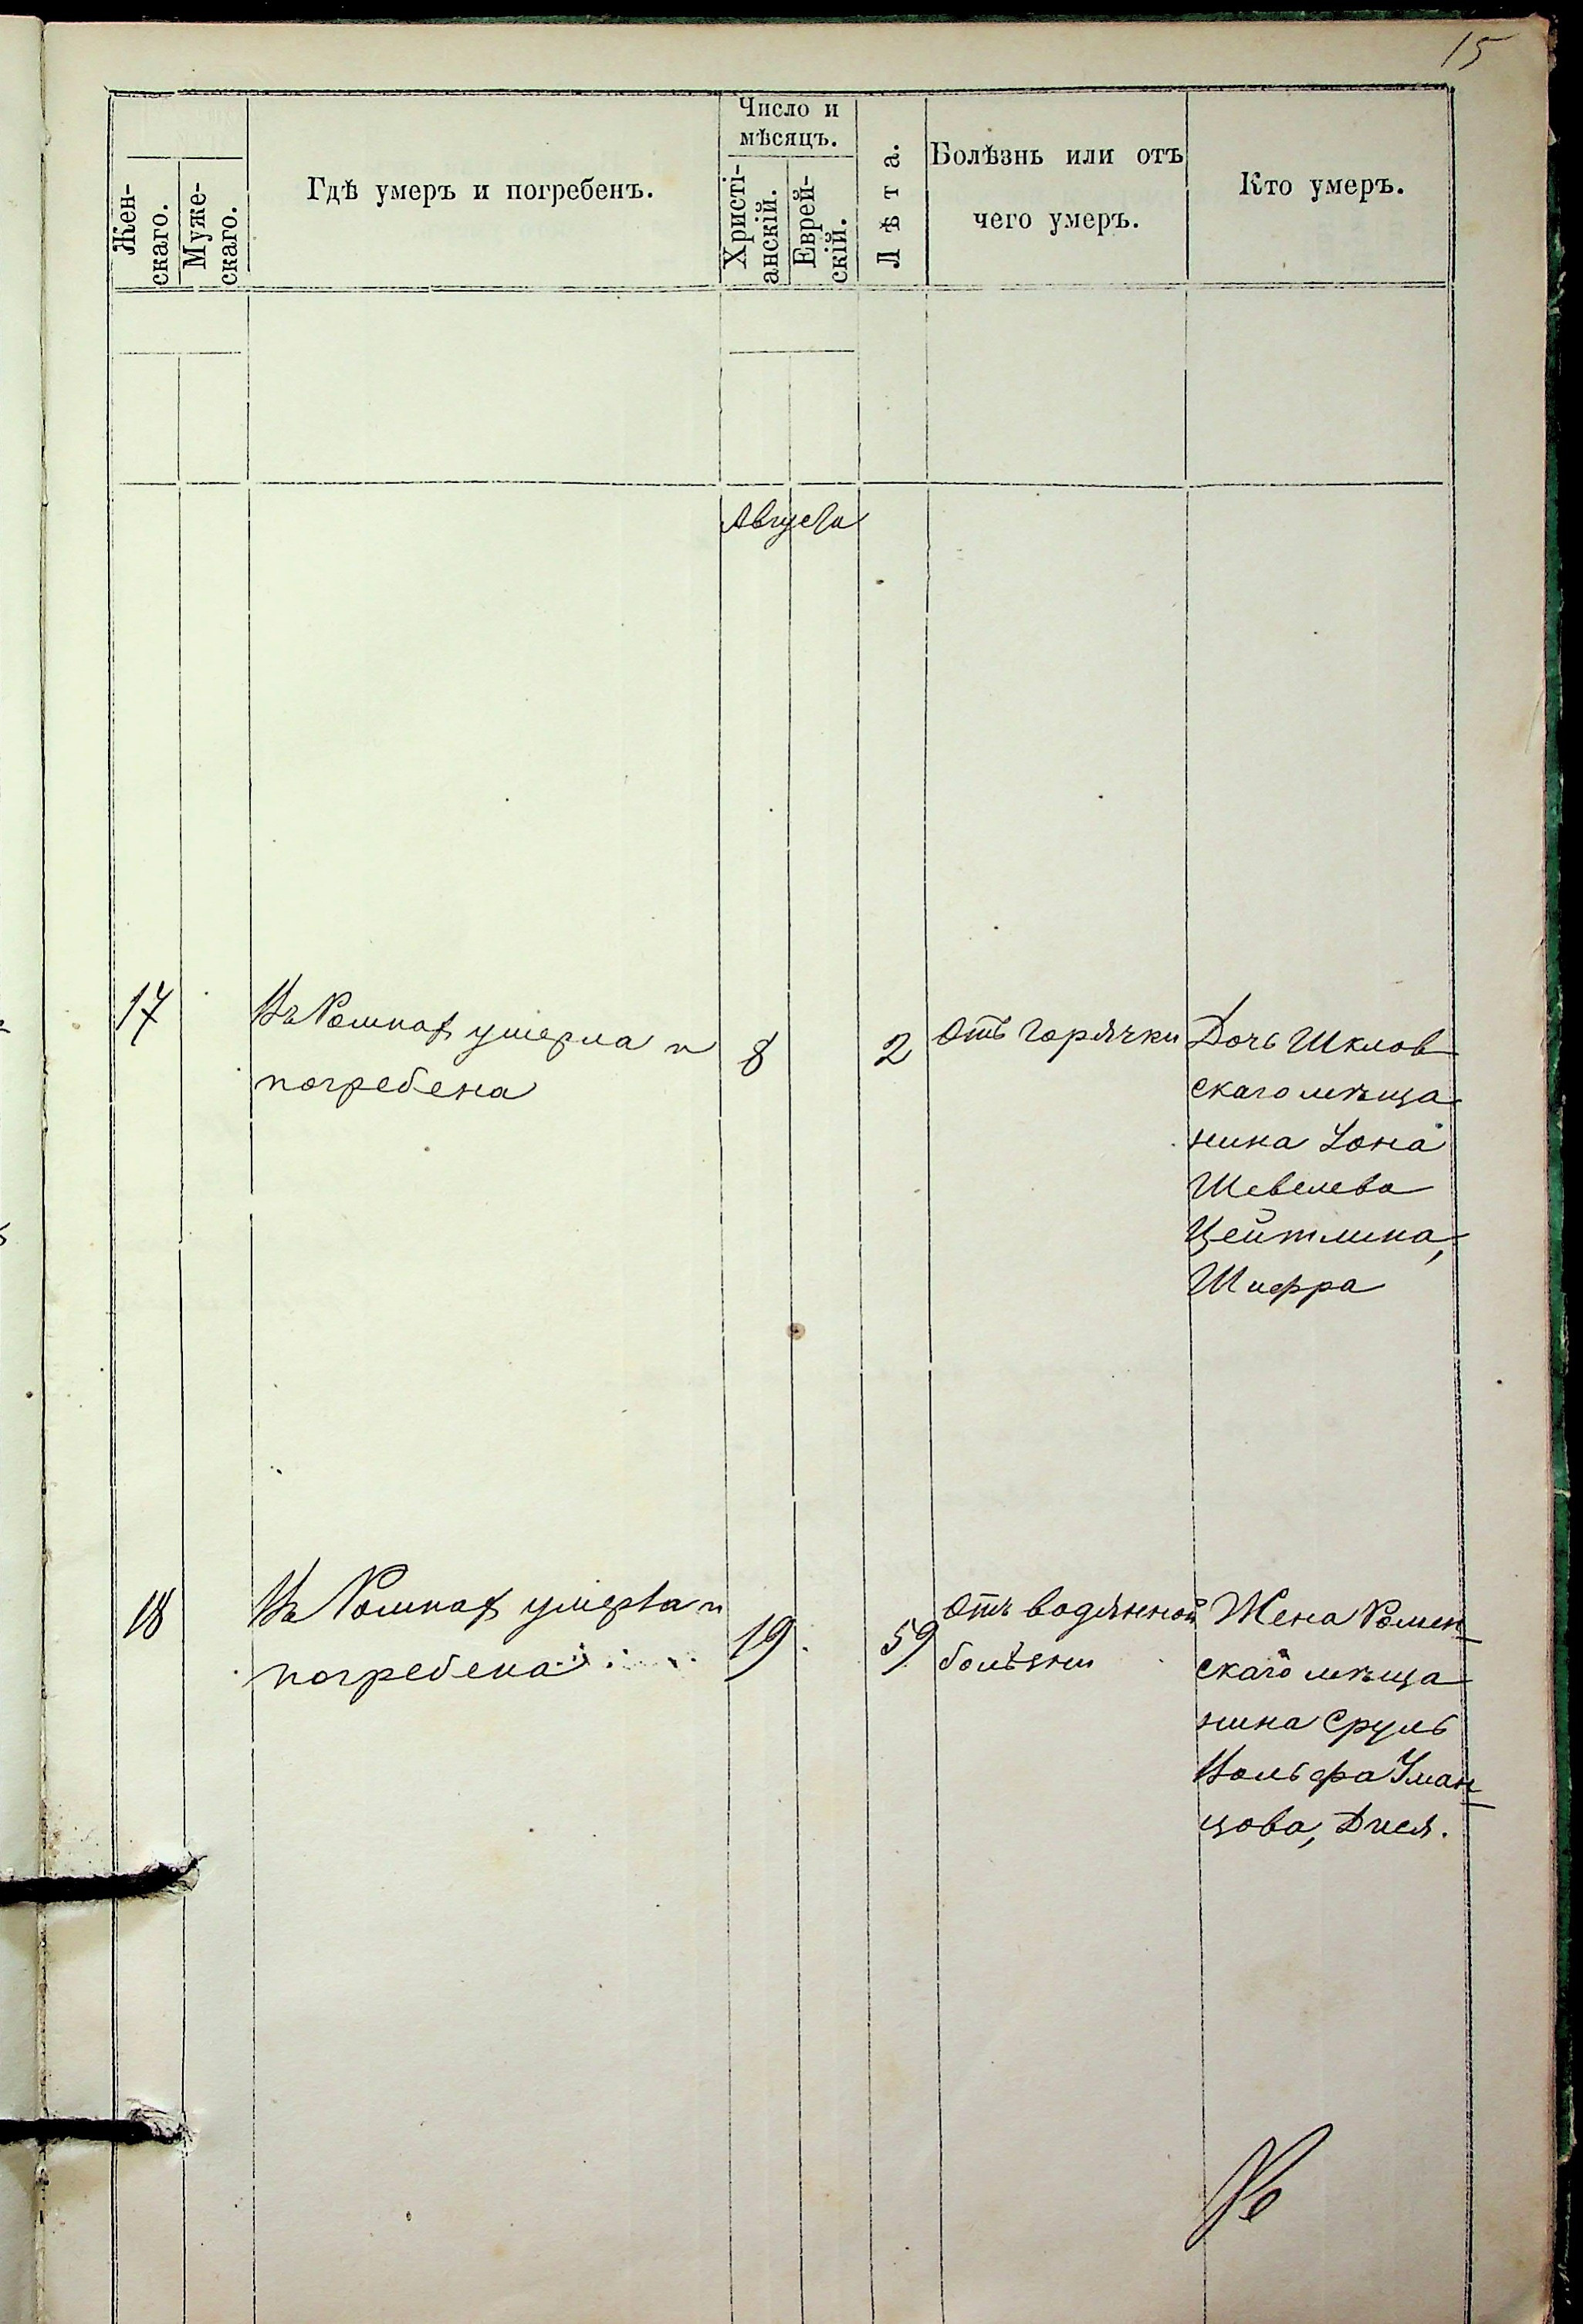 15
Жен-
скаго.
Муже-
скаго.
Гдѣ умеръ и погребенъ.
Число и
мѣсяцъ.
Христі-
анскій.
Еврей-
скій.
Лѣта.
Болѣзнь или отъ
чего умеръ.
Кто умеръ.
Августа
17
Въ Ромнах умерла и
погребена
8
2
Отъ горячки
Дочь Шклов
скаго мѣща
нина Іона
Шевелева
Цейтлина,
Шифра
18
Въ Ромнах умерла и
погребена
19
59
Отъ водянной
болѣзни
Жена Ромен-
скаго мѣща
нина Сруль
Вольфа Уман-
цова, Дися.